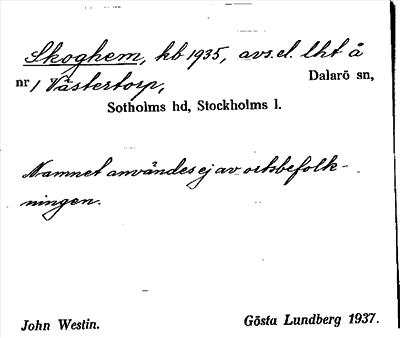 Skoghem, kb 1935, avs.el. lht å
nr 1 Västertorp, Dalarö sn,
Sotholms hd, Stockholms l.
Namnet användes ej av ortsbefolk-
ningen.
John Westin. Gösta Lundberg 1937.